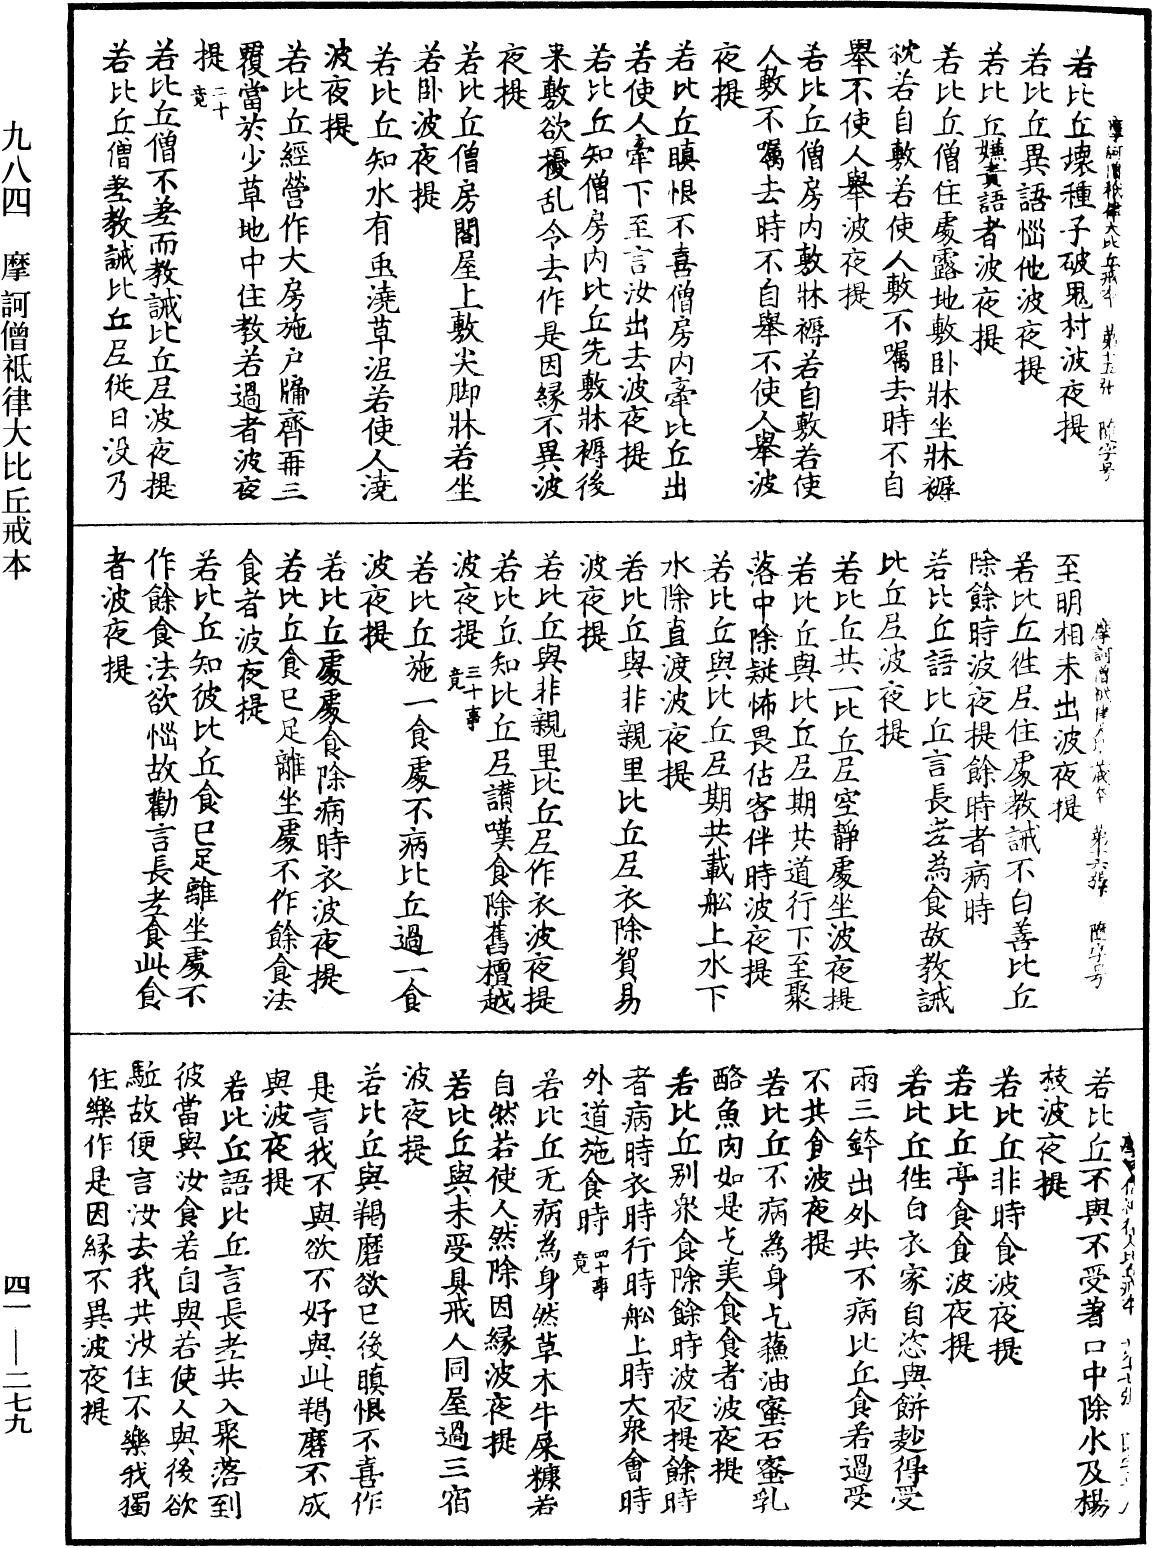 九八四　摩訶僧祇律大比丘戒本
四一—二七九
摩訶僧祇律大比丘戒本　第十五张　隨字号
若比丘壞種子破鬼村波夜提
若比丘異語惱他波夜提
若比丘嫌責語者波夜提
若比丘僧住處露地敷卧牀坐牀褥
枕若自敷若使人敷不囑去時不自
舉不使人舉波夜提
若比丘僧房内敷牀褥若自敷若使
人敷不囑去時不自舉不使人舉波
夜提
若比丘瞋恨不喜僧房内牽比丘出
若使人牽下至言汝出去波夜提
若比丘知僧房内比丘先敷牀褥後
来敷欲擾乱令去作是因緣不異波
夜提
若比丘僧房閣屋上敷尖脚牀若坐
若卧波夜提
若比丘知水有虫澆草泥若使人澆
波夜提
若比丘經營作大房施户牖齊再三
覆當於少草地中住教若過者波夜
提二十竟
若比丘僧不差而教誡比丘尼波夜提
若比丘僧差教誡比丘尼從日没乃
摩訶僧祇律大比丘戒本　第十六張　隨字号
至明相未出波夜提
若比丘徃尼住處教誡不白善比丘
除餘時波夜提餘時者病時
若比丘語比丘言長老為食故教誡
比丘尼波夜提
若比丘共一比丘尼空靜處坐波夜提
若比丘與比丘尼期共道行下至聚
落中除疑怖畏估客伴時波夜提
若比丘與比丘尼期共載舩上水下
水除直渡波夜提
若比丘與非親里比丘尼衣除貿易
波夜提
若比丘與非親里比丘尼作衣波夜提
若比丘知比丘尼讃嘆食除舊檀越
波夜提三十事竟
若比丘施一食處不病比丘過一食
波夜提
若比丘處處食除病時衣波夜提
若比丘食已足離坐處不作餘食法
食者波夜提
若比丘知彼比丘食已足離坐處不
作餘食法欲惱故勸言長老食此食
者波夜提
若比丘不與不受著口中除水及楊
枝波夜提
若比丘非時食波夜提
若比丘亭食食波夜提
若比丘徃白衣家自恣與餅麨得受
兩三鉢出外共不病比丘食若過受
不共食波夜提
若比丘不病為身乞蘓油蜜石蜜乳
酪魚肉如是乞美食食者波夜提
若比丘别衆食除餘時波夜提餘時
者病時衣時行時舩上時大衆會時
外道施食時四十事竟
若比丘无病為身然草木牛屎糠若
自然若使人然除因緣波夜提
若比丘與未受具戒人同屋過三宿
波夜提
若比丘與羯磨欲已後瞋恨不喜作
是言我不與欲不好與此羯磨不成
與波夜提
若比丘語比丘言長老共入聚落到
彼當與汝食若自與若使人與後欲
駈故便言汝去我共汝住不樂我獨
住樂作是因緣不異波夜提